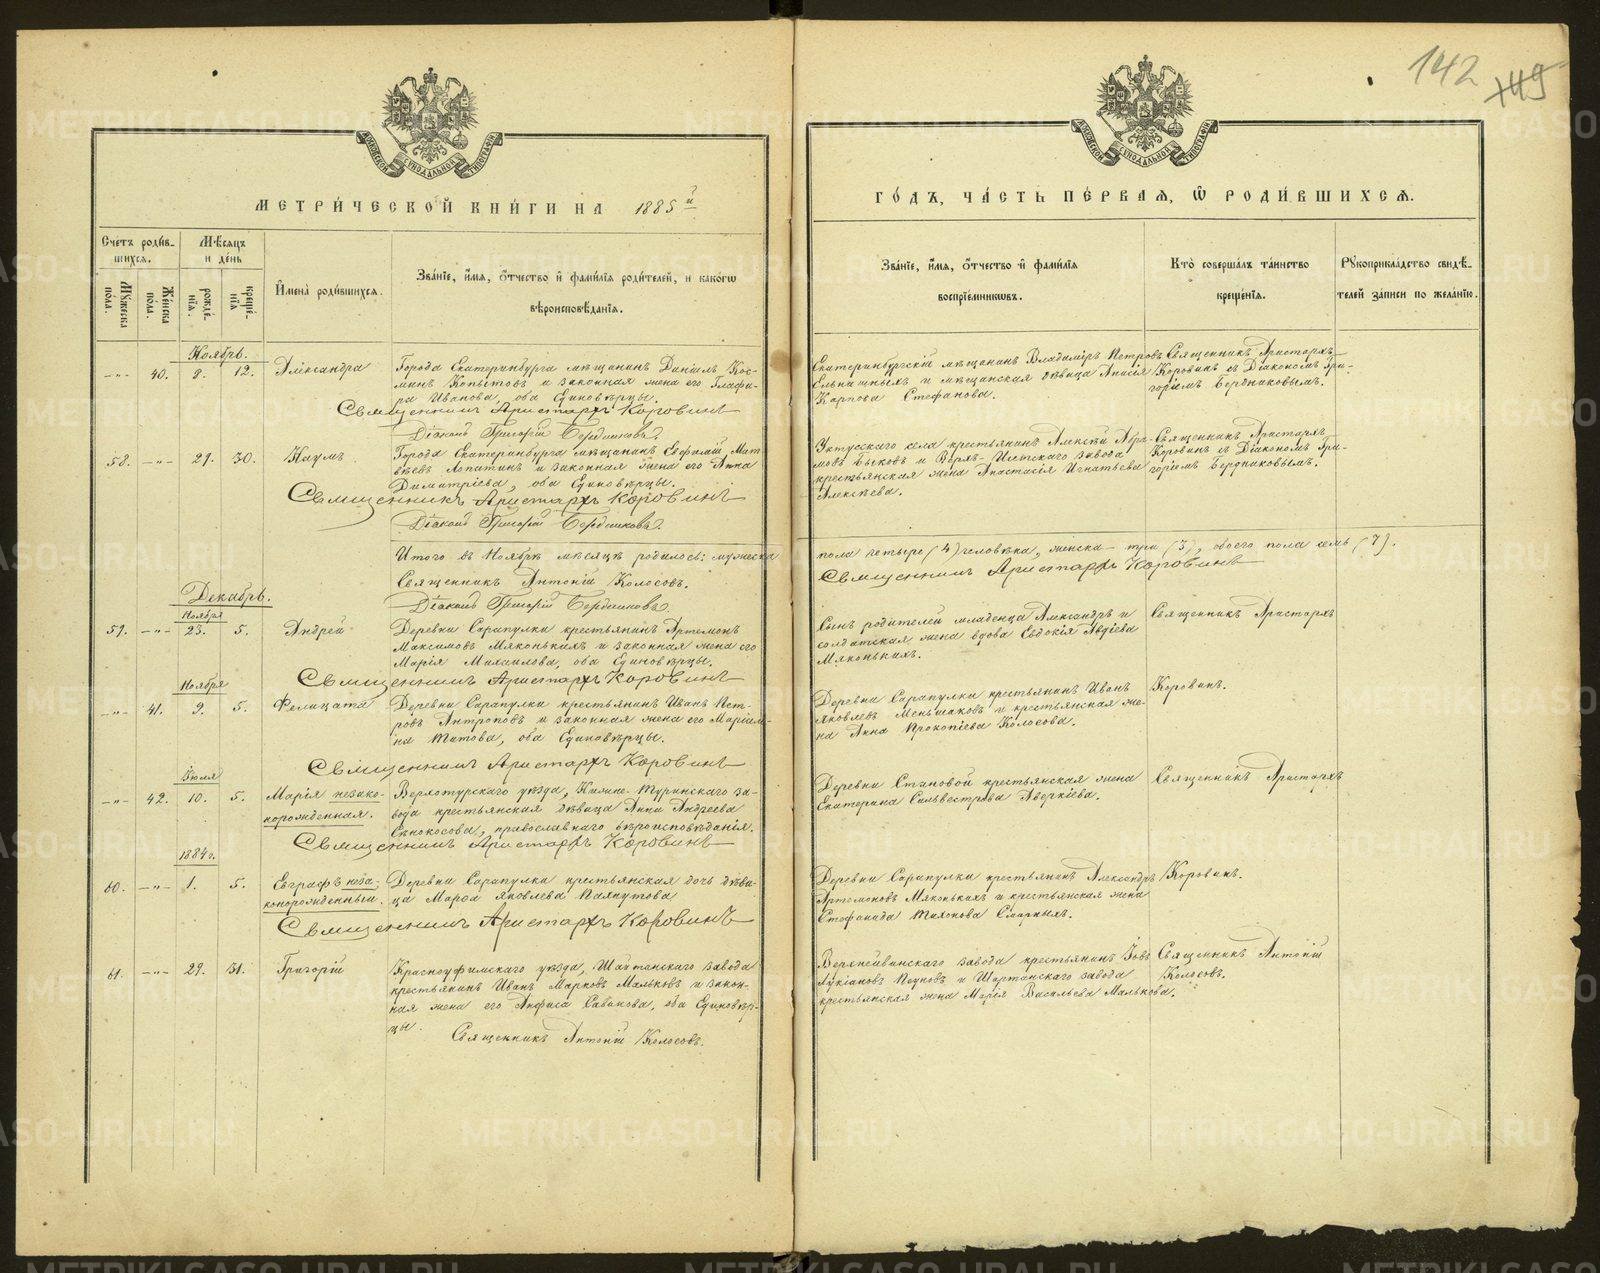 142
МОСКОВСКОЙ СѴНОДАЛЬНОЙ ТИПОГРАФІИ
МЕТРИ́ЧЕСКОЙ КНИ́ГИ НА 1885й
ГО́ДЪ, ЧА́СТЬ ПЕ́РВАЯ, Ѿ РОДИ́ВШИХСЯ.
Счетъ роди́в-
шихся.
Мѣсяцъ
и де́нь
Мꙋжеска пола.
Же́нска по́ла.
рожде́нїя.
креще́нїя.
И҆мена̀ роди́вшихся.
Зва́нїе, и҆́мя, ѻ҆́тчество и҆ фами́лїя роди́телей, и како́гѡ
вѣроисповѣ́данїя.
Зва́нїе, и҆́мя, ѻ҆́тчество и҆ фами́лїя
воспрїе́мникѡвъ.
Кто̀ соверша́лъ та́инство
креще́нїя.
Рꙋкоприкла́дство свидѣ́-
телей за́писи по жела́нїю.
Ноябрь.
-„- 40. 8. 12. Александра
Города Екатеринбурга мѣщанинъ Данiилъ Кос-
минъ Копытовъ и законная жена его Глафи-
ра Иванова, оба Единовѣрцы.
Священникъ Аристархъ Коровинъ
Дiаконъ Григорiй Бердниковъ.
Екатеринбургскiй мѣщанинъ Владимiръ Петровъ
и мѣщанская дѣвица Анисiя
Карпова Стефанова.
Священникъ Аристархъ
Коровинъ съ Дiакономъ Гри-
горiемъ Бердниковымъ.
58. -„- 29. 30. Наумъ
Города Екатеринбурга мѣщанинъ Ефимiй Мат-
вѣевъ Лопатинъ и законная жена его Анна
Димитрiева, оба Единовѣрцы.
Священникъ Аристархъ Коровинъ
Дiаконъ Григорiй Бердниковъ.
Уктусскаго села крестьянинъ Алексѣй Абра-
мовъ Быковъ и Верхъ-Исетскаго завода
крестьянская жена Анастасiя Игнатьева
Алексѣева.
Священникъ Аристархъ
Коровинъ съ Дiакономъ Гри-
горiемъ Бердниковымъ.
Итого въ Ноябрѣ мѣсяцѣ родилось: мужеска
пола четыре (4) человѣка, женска – три (3), обоего пола семь (7).
Священникъ Антонiй Колосовъ.
Священникъ Аристархъ Коровинъ
Дiаконъ Григорiй Бердниковъ.
Декабрь.
Ноября
59. -„- 23. 5. Андрей
Деревни Сарапулки крестьянинъ Артемонъ
Максимовъ Мяконькихъ и законная жена его
Марiя Михаилова, оба Единовѣрцы.
Священникъ Аристархъ Коровинъ
Сынъ родителей младенца Александръ и
солдатская жена вдова Евдокiя Авдiева
Мяконькихъ.
Священникъ Аристархъ
Ноября
-„- 41. 9. 5. Фелицата
Деревни Сарапулки крестьянинъ Иванъ Пет-
ровъ Антроповъ и законная жена его Марiам-
на Титова, оба Единовѣрцы.
Священникъ Аристархъ Коровинъ
Деревни Сарапулки крестьянинъ Иванъ
Яковлевъ Меньшаковъ и крестьянская же-
на Анна Прокопiева Колосова.
Коровинъ.
Iюля
-„- 42. 10. 5. Марiя незако-
норожденная.
Верхотурскаго уѣзда, Нижне-Туринскаго за-
вода крестьянская дѣвица Анна Андреева
Сѣнокосова, православнаго вѣроисповѣданiя.
Священникъ Аристархъ Коровинъ
Деревни Становой крестьянская жена
Екатерина Сильвестрова Аверкiева.
Священникъ Аристархъ
1884 г.
60. -„- 1. 5. Евграфъ неза-
конорожденный.
Деревни Сарапулки крестьянская дочь дѣви-
ца Марѳа Яковлева Паяпутова
Священникъ Аристархъ Коровинъ
Деревни Сарапулки крестьянинъ Александръ
Артемоновъ Мяконькихъ и крестьянская жена
Стефанида Тихонова
Коровинъ.
61. -„- 29. 31. Григорiй
Красноуфимскаго уѣзда, Шайтанскаго завода
крестьянинъ Иванъ Марковъ Мальковъ и закон-
ная жена его Анфиса Савинова, оба Единовѣр-
цы.
Священникъ Антонiй Колосовъ.
Верхнейвинскаго завода крестьянинъ Iовъ
Лукiановъ и Шарташскаго завода
крестьянская жена Марiя Васильева Малькова.
Священникъ Антонiй
Колосовъ.
METRIKI.GASO-URAL.RU